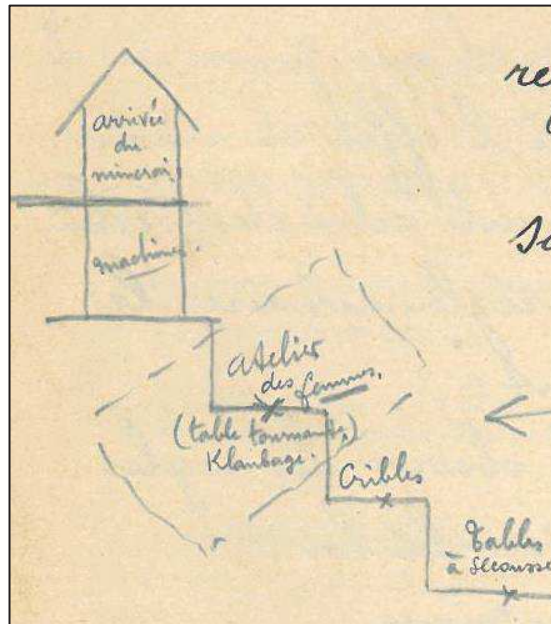 arrivée
du
minerai
machines.
re
Sa
atelier
des femmes.
(table tournante)
Klaubage.
Cribles
Tables
à secousse